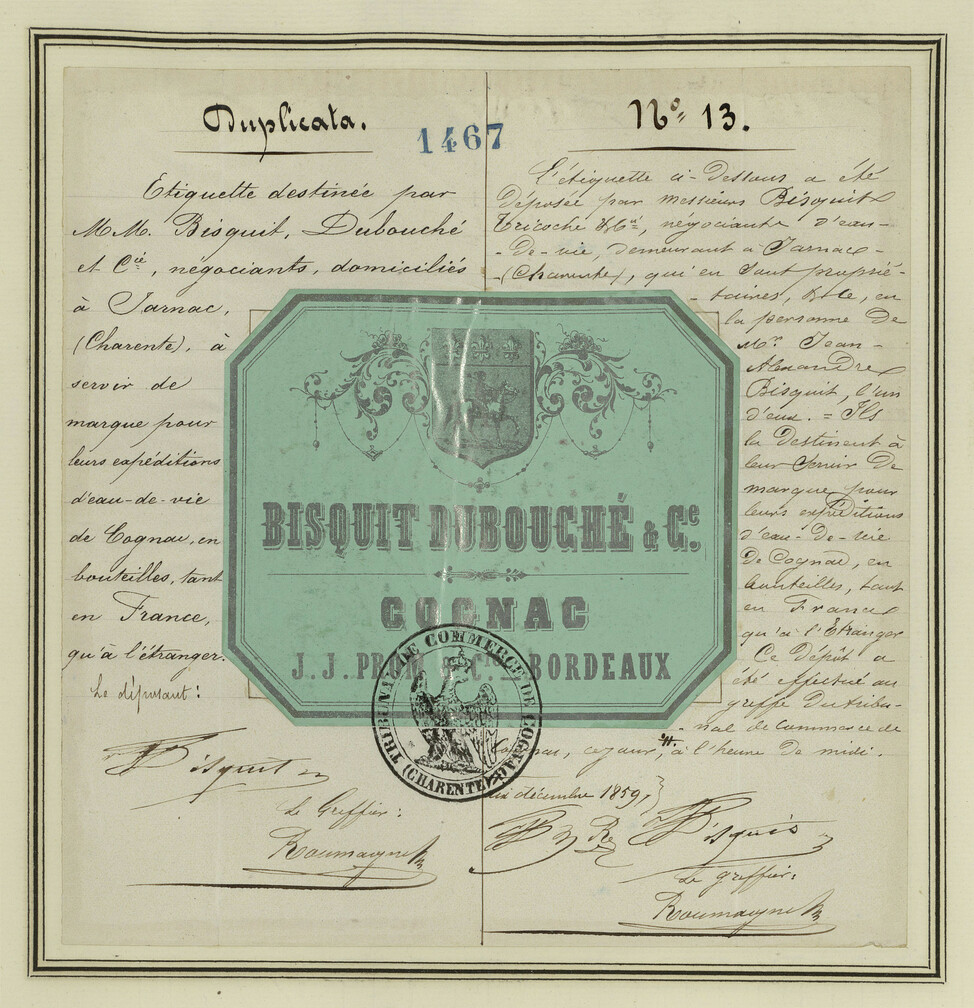 Duplicata.
1467
Etiquette destinée par
M.M. Bisquit, Dubouché
et Cie, négociants, domiciliés
à Jarnac,
(Charente), à
servir de
marque pour
leurs expéditions
d'eau-de-vie
de Cognac, en
bouteilles, tant
en France,
qu'à l'étranger.
Le déposant:
Bisquit
Le Greffier:
Roumagne
BISQUIT DUBOUCHÉ & Ce.
COGNAC
J.J. & C. BORDEAUX
TRIBUNAL DE COMMERCE DE COGNAC
(CHARENTE)
No. 13.
L'étiquette ci-Dessous a été
déposée par messieurs Bisquit
Tricoche &Cie, négociants d'eau-
-de-vie, demeurant à Jarnac
(Charente), qui en sont proprié-
-taires, en
la personne de
Mr. Jean-
Alexandre
Bisquit, l'un
d'eux. = Ils
la Destinent à
leur servir de
marque pour
leurs expéditions
d'eau-de-vie
de Cognac, en
bouteilles, tant
en France
qu'à l'Etranger
Ce Dépôt a
été effectué au
greffe du tribu-
-nal de commerce de
Cognac, ce jour, à l'heure de midi.
dix décembre 1859,
Bisquit
Le greffier:
Roumagne